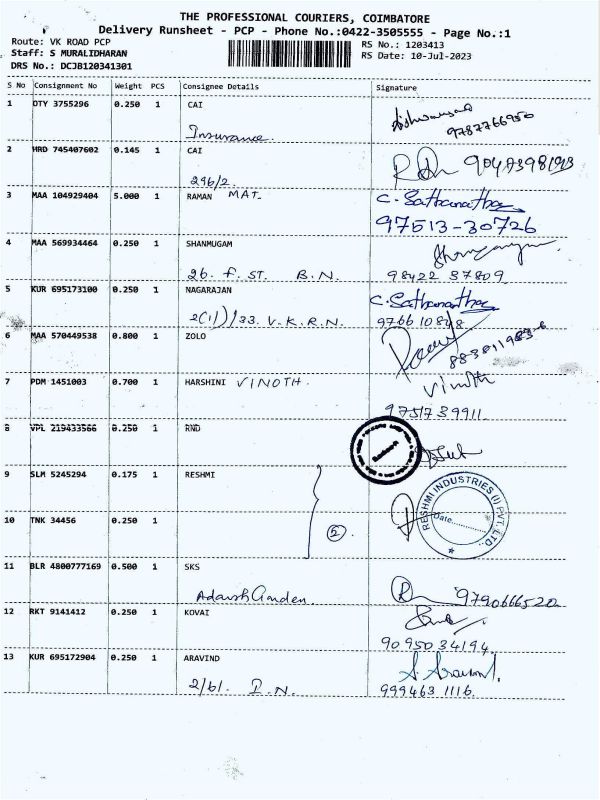 THE PROFESSIONAL COURIERS, COIMBATORE
Delivery Runsheet - PCP - Phone No.:0422-3505555 - Page No.:1
Route: VK ROAD PCP
Staff: S MURALIDHARAN
DRS No.: DCJB120341301
RS No.: 1203413
RS Date: 10-Jul-2023
S No Consignment No Weight PCS Consignee Details Signature
1 OTY 3755296 0.250 1 CAI
Insurance
9787766950
2 HRD 745407602 0.145 1 CAI
296/2.
3 MAA 104929404 5.000 1 RAMAN MAT. C. Sathanathan
97513-30726
4 MAA 569934464 0.250 1 SHANMUGAM
26. F. ST. B.N. 98422 37809
5 KUR 695173100 0.250 1 NAGARAJAN C. Sathanathan
2(1)/33. V.K.R.N.
6 MAA 570449538 0.800 1 ZOLO
7 PDM 1451003 0.700 1 HARSHINI VINOTH. Vinoth
9751739911
8 VPL 219433566 0.250 1 RND
9 SLM 5245294 0.175 1 RESHMI
RESHMI INDUSTRIES (I) PVT. LTD.
Date
10 TNK 34456 0.250 1
2
11 BLR 4800777169 0.500 1 SKS
Adarsh Garden 9790666520
12 RKT 9141412 0.250 1 KOVAI
90950 34194
13 KUR 695172904 0.250 1 ARAVIND
2/61. D.N. 999463 1116.